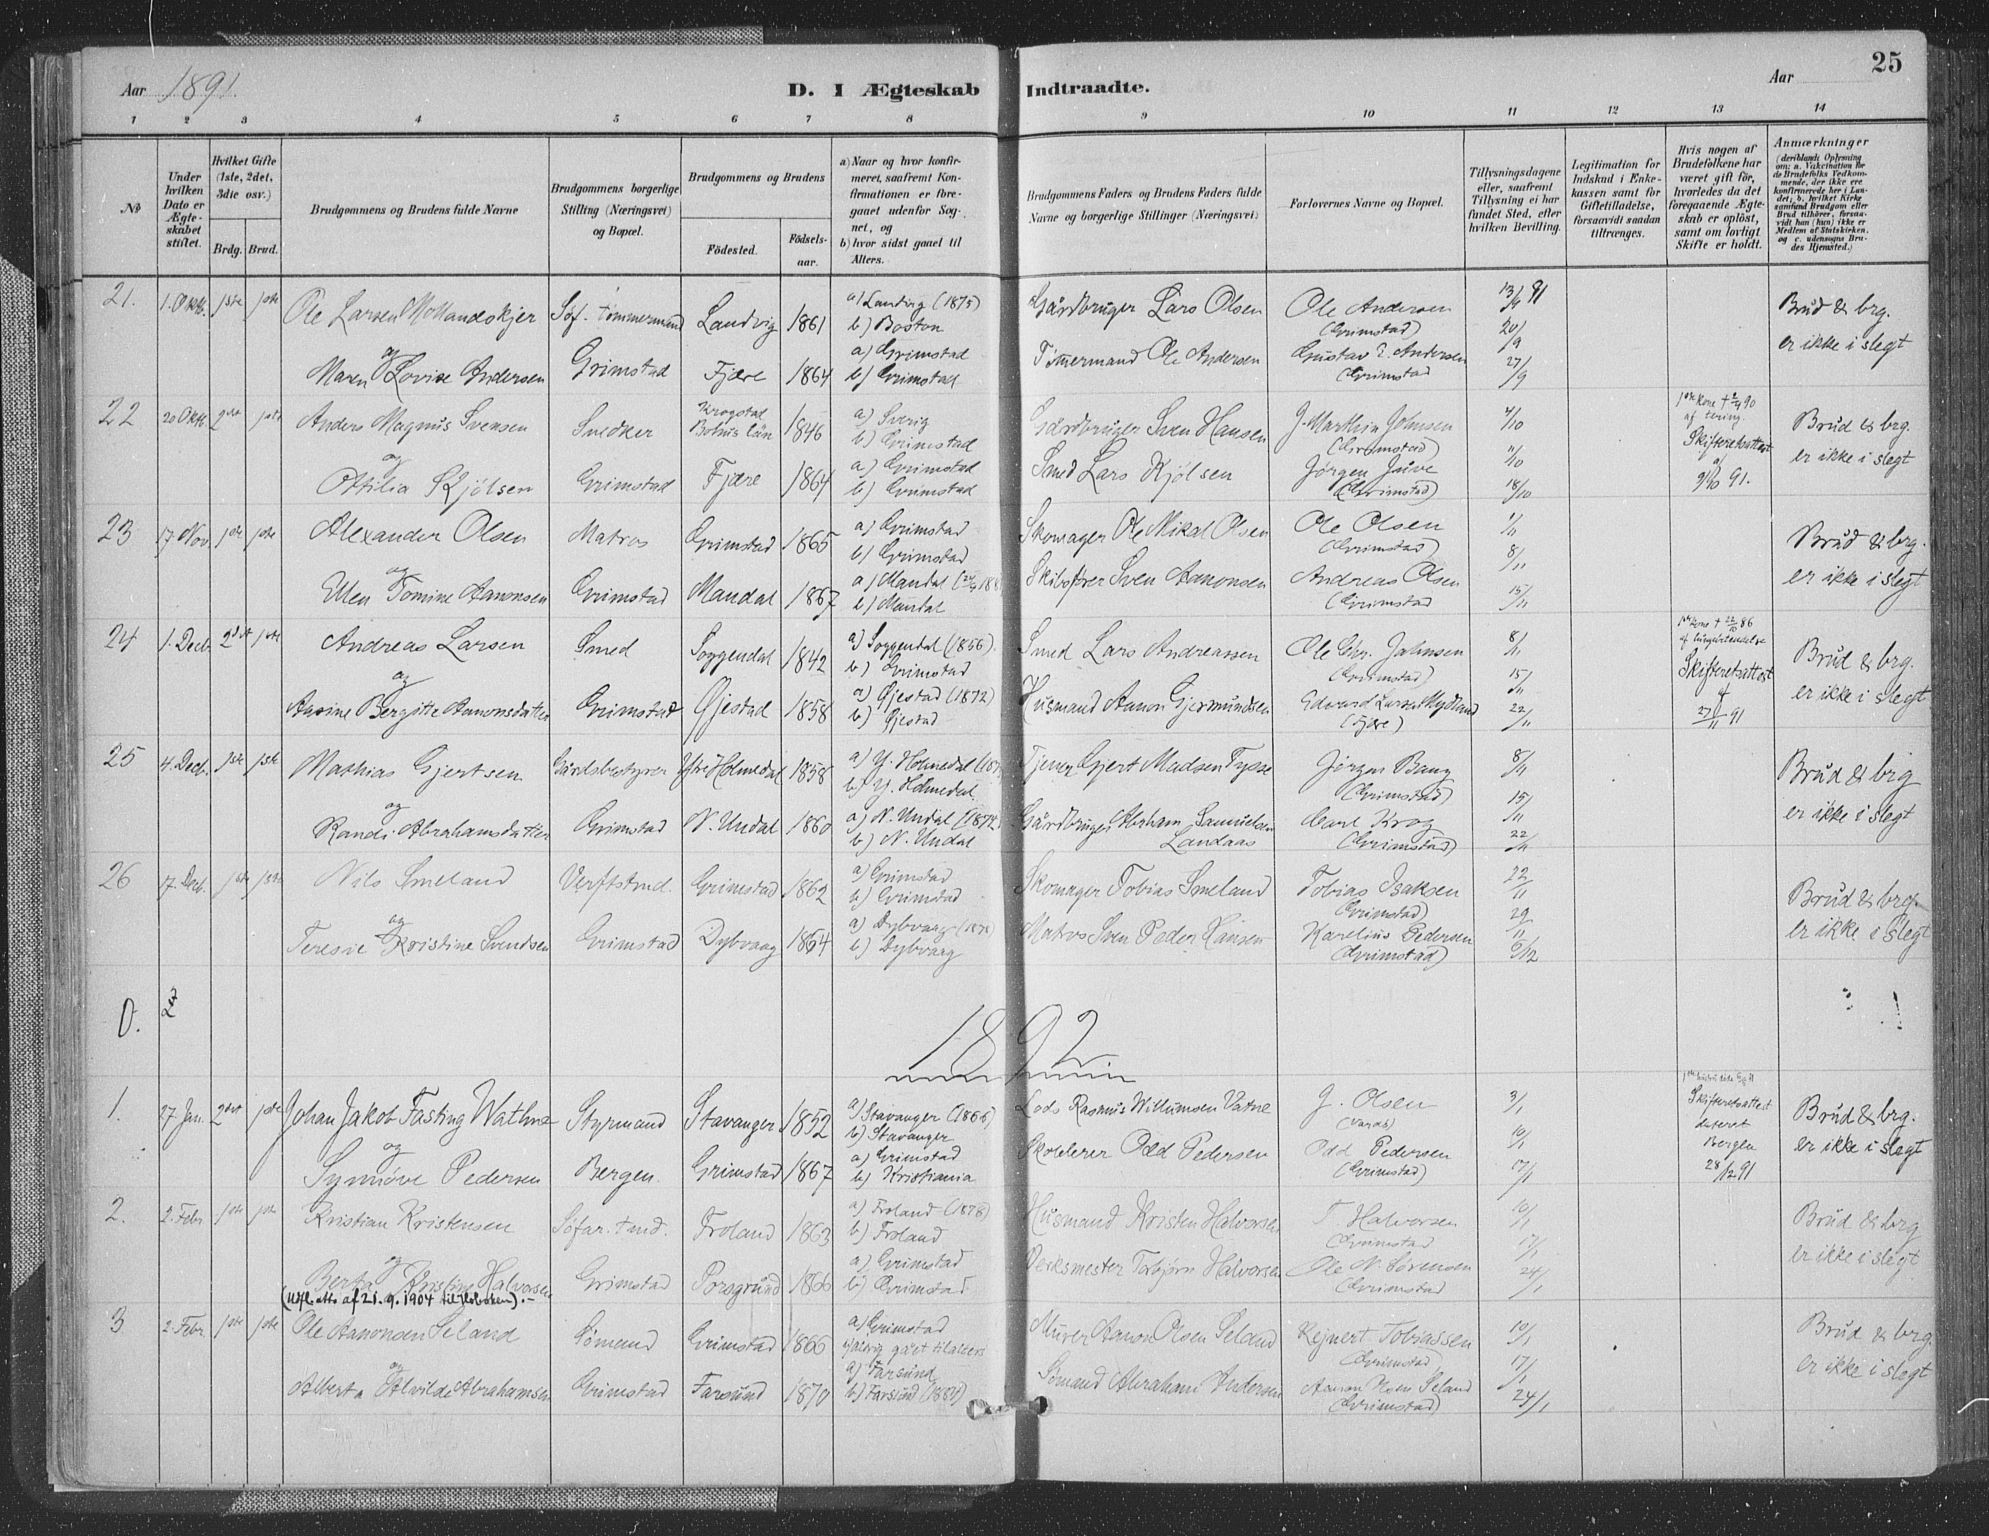 Aar 1891.
D. I Ægteskab Indtraadte.
Aar
25
1 2 3 4 5 6 7 8 9 10 11 12 13 14
№
Under hvilken Dato er Ægteskabet stiftet.
Hvilket Gifte (1ste, 2det, 3die osv.)
Brdg. Brud.
Brudgommens og Brudens fulde Navne
Brudgommens borgerlige Stilling (Næringsvei) og Bopæl.
Brudgommens og Brudens
Fødested. Fødselsaar.
a) Naar og hvor konfirmeret, saafremt Konfirmationen er foregaaet udenfor Sognet, og
b) hvor sidst gaaet til Alters.
Brudgommens Faders og Brudens Faders fulde Navne og borgerlige Stillinger (Næringsvei)
Forlovernes Navne og Bopæl.
Tillysningsdagene eller, saafremt Tillysning ei har fundet Sted, efter hvilken Bevilling.
Legitimation for Indskud i Enkekassen samt for Giftetilladelse, forsaavidt saadan tiltrænges.
Hvis nogen af Brudefolkene har været gift før, hvorledes da det foregaaende Ægteskab er opløst, samt om lovligt Skifte er holdt.
Anmærkninger
21. 1. Oktb. 1ste 1ste Ole Larsen Mollandskjer Søf. tømmermand Landvig 1861 a) Landvig (1875) b) Boston Gårdbruger Lars Olsen Ole Andersen (Grimstad) 13/9 91 20/9 Brud & brg. er ikke i slegt
og
Maren Lovise Andersen Grimstad Fjære 1864 a) Grimstad b) Grimstad Tømmermand Ole Andersen Gustav E. Andersen (Grimstad 27/9
22 20 Oktb. 2det 1ste Anders Magnus Svensen Snedker Krogstad Bohus län 1846 a) Sverig b) Grimstad Gårdbruger Sven Hansen J. Marthin Johnsen (Grimstad) 4/10 11/10 1ste kone + 2/4 90 af tæring. Skifteretsattest af 9/10 91. Brud & brg. er ikke i slegt
og
Ottilia Kjølsen Grimstad Fjære 1864 a) Grimstad b) Grimstad Smed Lars Kjølsen Jørgen Juve (Grimstad) 18/10
23 17 Nov 1ste 1ste Alexander Olsen Matros Grimstad 1865 a) Grimstad b) Grimstad Skomager Ole Mikal Olsen Ole Olsen (Grimstad) 1/11 8/11 Brud & brg. er ikke i slegt
og
Ellen Tomine Aanonsen Grimstad Mandal 1867 a) Mandal b) Mandal Skibsfører Sven Aanonsen Andreas Olsen (Grimstad 15/11
24 1. Decb. 2det 1ste Andreas Larsen Smed Soggendal 1842 a) Soggendal (1856) b) Grimstad Smed Lars Andreassen Ole Chr. Johnsen (Grimstad) 8/11 15/11 1ste kone + 22/10 86 Skifteretsattest af 27/11 91 Brud & brg. er ikke i slegt
og
Aasine Bergitte Aanonsdatter Grimstad Øjestad 1858 a) Øjestad (1872) b) Øjestad Husmand Aanon Gjermundsen Edvard Larsen Mydland (Fjære) 22/11
25 4. Decb. 1ste 1ste Mathias Gjertsen Gårdsbestyrer Ytre Holmedal 1858 a) Y. Holmedal b) Y. Holmedal Tjener Gjert Madsen Tysse Jørgen Bang (Grimstad) 8/11 15/11 Brud & brg er ikke i slegt
og
Randi Abrahamsdatter Grimstad N. Undal 1860 a) N. Undal (1874) b) N. Undal Gårdbruger Abraham Samuelsen Landaas Carl Krog (Grimstad) 22/11
26 17. Decb. 1ste 1ste Nils Smeland Verftstmd. Grimstad 1862 a) Grimstad b) Grimstad Skomager Tobias Smeland Tobias Isaksen (Grimstad) 22/11 29/11 Brud & brg. er ikke i slegt
og
Teresie Kristine Svendsen Grimstad Dybvaag 1864 a) Dybvaag b) Dybvaag Matros Sven Peder Hansen Karelius Pedersen (Grimstad) 6/12
0.
1892
1. 27 Jan. 2det 1ste Johan Jakob Fasting Wathne Styrmand Stavanger 1852 a) Stavanger (1866) b) Stavanger Lods Rasmus Willumsen Vatne J. Olsen 3/1 10/1 Skifteretsattest dateret Bergen 28/12 91 Brud & brg. er ikke i slegt
og
Synnøve Pedersen Bergen Grimstad 1867 a) Grimstad b) Kristiania Skolelærer Odd Pedersen Odd Pedersen (Grimstad) 17/1
2. 2. Febr 1ste 1ste Kristian Kristensen Søfar. tmd. Froland 1863 a) Froland (1878) b) Froland Husmand Kristen Halvorsen T. Halvorsen (Grimstad 10/1 17/1 Brud & brg er ikke i slegt
og
Berta Kristine Halvorsen Grimstad Porsgrund 1866 a) Grimstad b) Grimstad Verksmester Torbjørn Halvorsen Ole N. Sørensen (Grimstad 24/1
(Utfl. atts af 21.9.1904 til Hoboken).-
3 2. Febr. 1ste 1ste Ole Aanonsen Seland Sømand Grimstad 1866 a) Grimstad b) aldrig gået tilalters Murer Aanon Olsen Seland Rejnert Tobiassen (Grimstad) 10/1 17/1 Brud & brg. er ikke i slegt
og
Alberta Alvilde Abrahamsen Grimstad Farsund 1870 a) Farsund b) Farsund (1884) Sømand Abraham Andersen Aanon Olsen Seland (Grimstad) 24/1